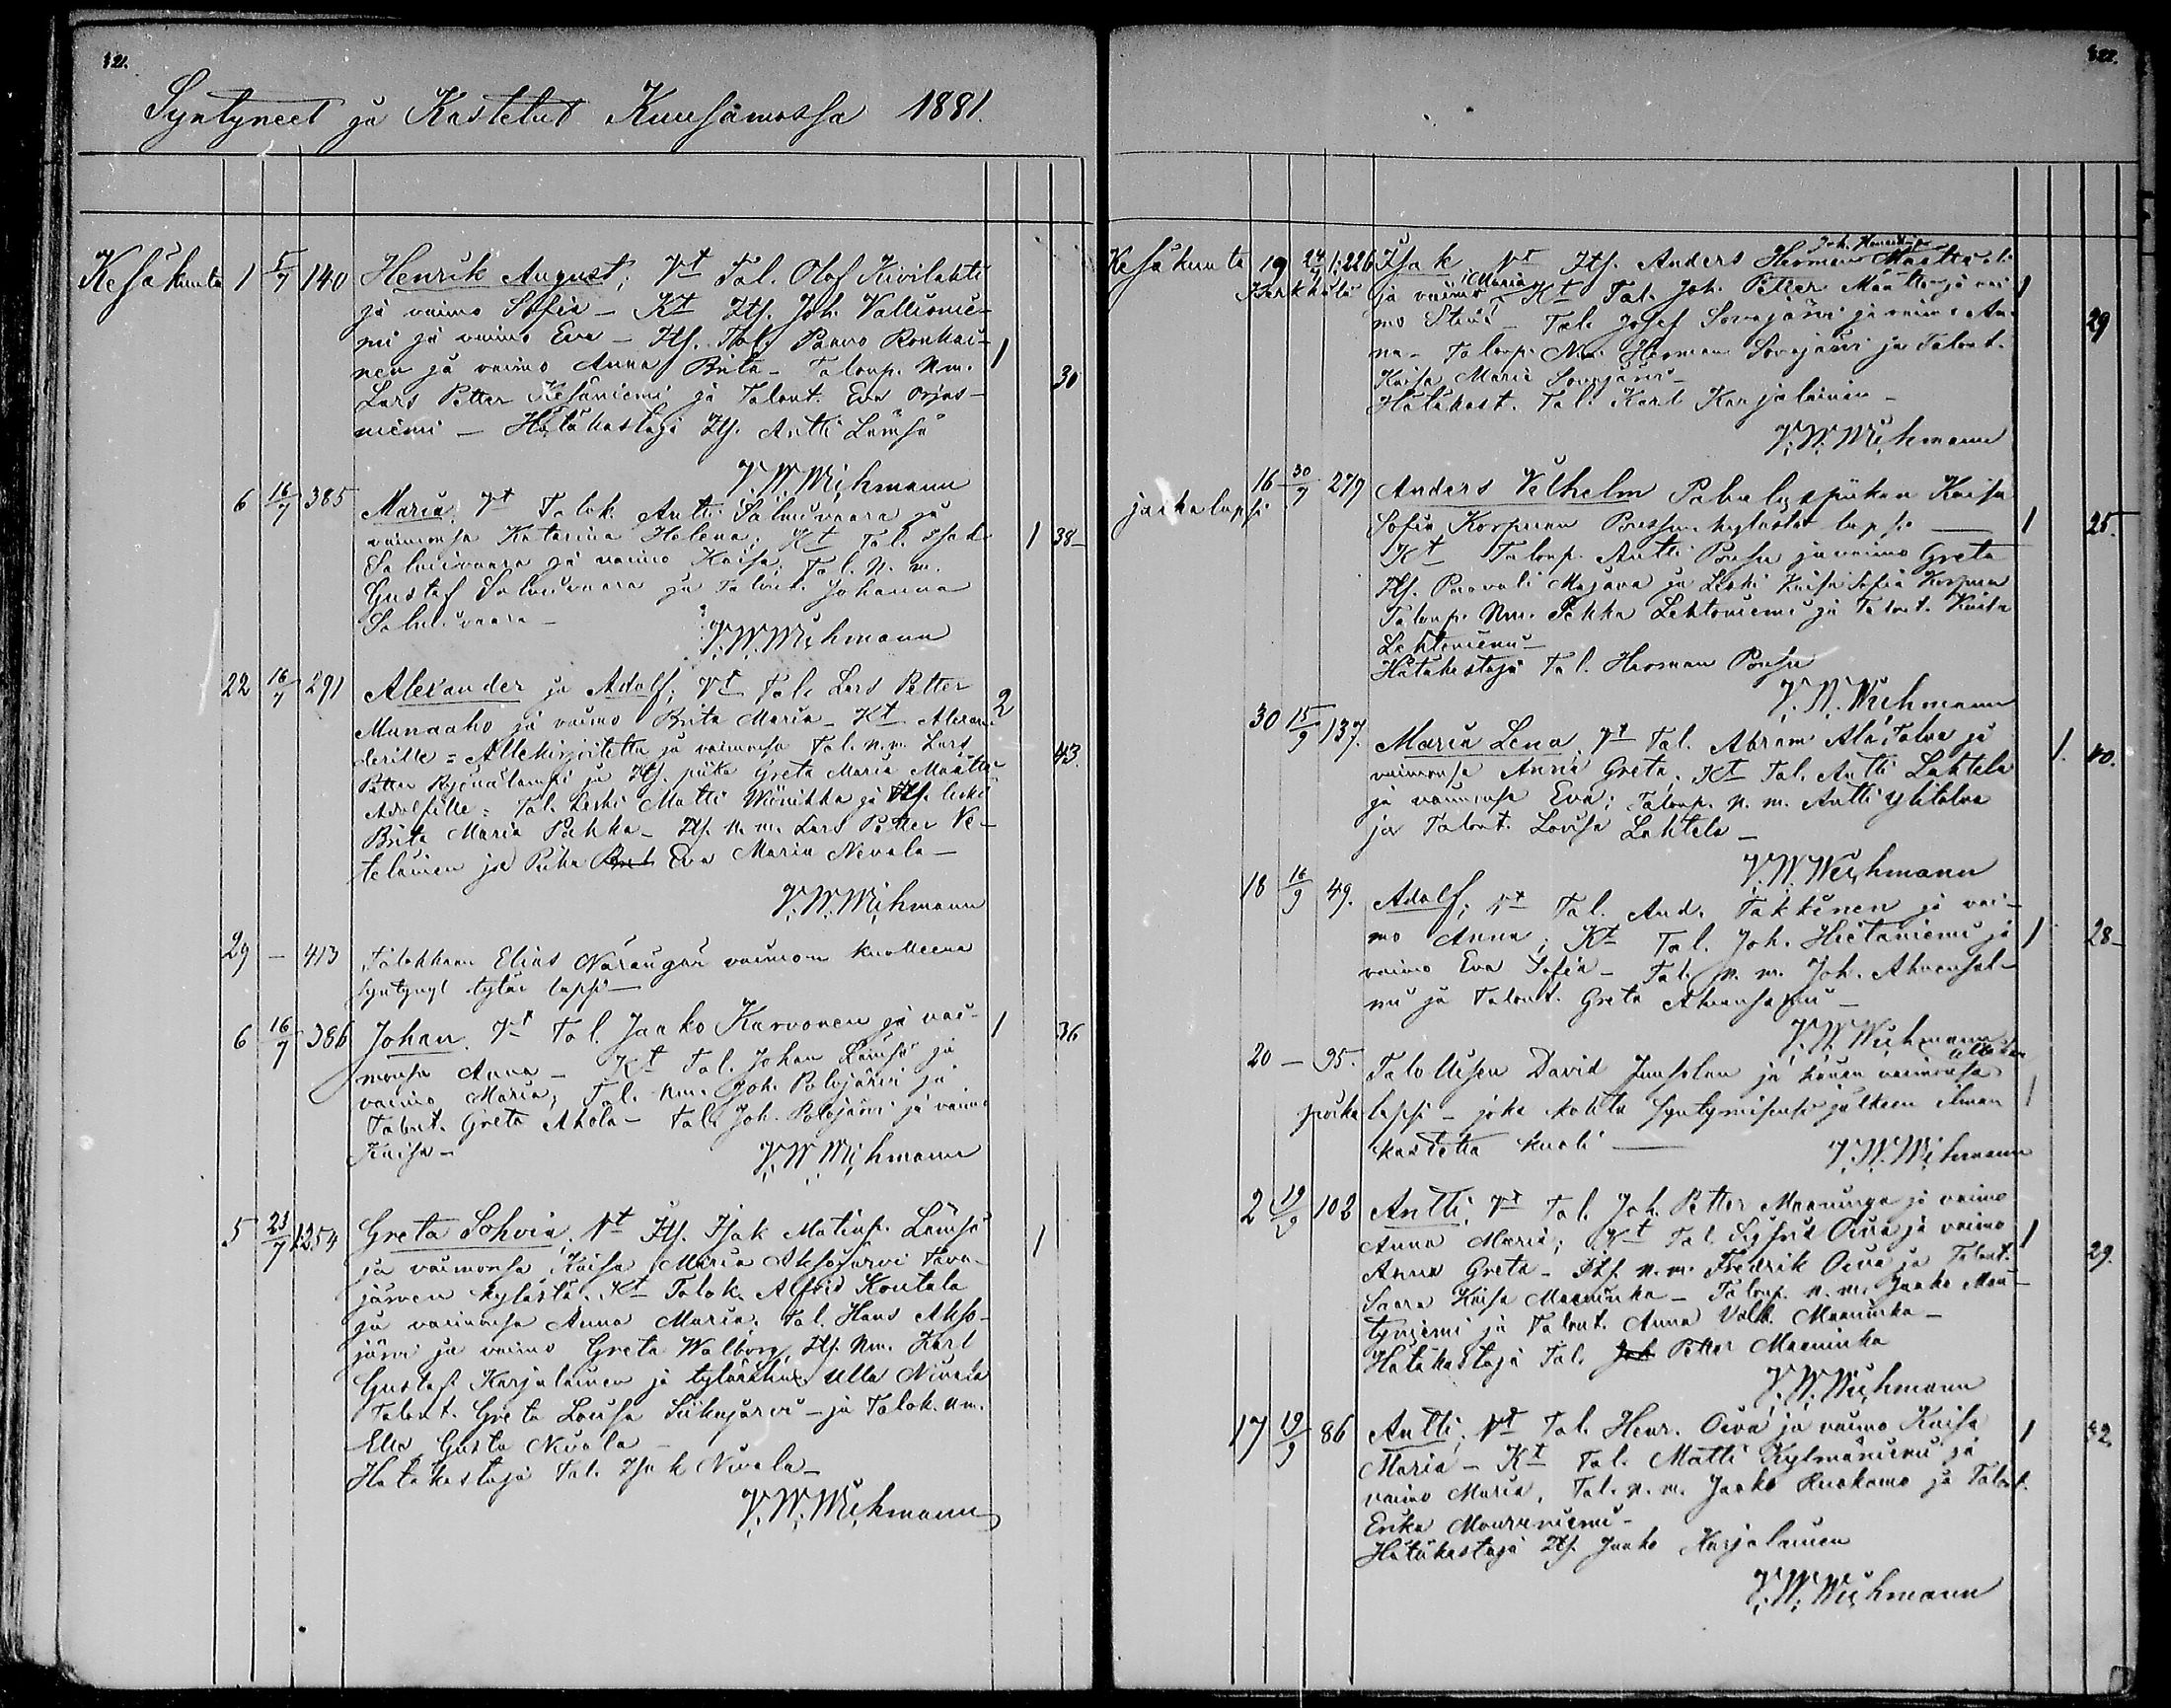 121.
Syntyneet ja Kastetut Kuusamossa 1881.
Kesäkuuta 1 5/7 140 Henrik August; Vt Tal. Olof Kivilahti
ja vaimo Sofia - Kt Its. Joh. Vallionie-
mi ja vaimo Eva - Its. Tal. Paavo Ronkai-
nen ja vaimo Anna Brita - Talonp. Nm. 1
Lars Petter Kesäniemi ja Talont. Eva Orjas- 30
niemi - Hätäkastaja Its. Antti Lämsä
V. W. Wichmann
6 16/7 385 Maria, Vt Talok. Antti Salmivaara ja
vaimonsa Katarina Helena. Kt Tal. Isak 1 38-
Salmivaara ja vaimo Kaisa; Tal. N. m.
Gustaf Salmivaara ja Talont. Johanna
Salmivaara -
V. W. Wichmann
22 16/7 291 Alexander ja Adolf; Vt Tal. Lars Petter
Munaaho ja vaimo Brita Maria - Kt Alexan- 2
derille = Allekirjoitettu ja vaimonsa Tal. n.m. Lars
Petter ja Its. piika Greta Maria Määttä 43.
Adolfille = Tal. Leski Matti Männikkö ja Its. leski
Brita Maria Pahka - Its. N. m. Lars Petter Ve-
teläinen ja Piika Eva Maria Nevala -
V. W. Wichmann
29 - 413 Talokkaan Elias Närängän vaimon kuolleena
syntynyt tytär lapsi -
6 16/7 386 Johan. Vt Tal. Jaako Karvonen ja vai- 1 36
monsa Anna - Kt Tal. Johan Lämsä ja
vaimo Maria, Tal. Nm. Joh. Polojärvi ja
Talont. Greta Ahola - Tal. Joh. Polojärvi ja vaimo
Kaisa -
V. W. Wichmann
5 23/7 1254 Greta Sohvia, Vt Its. Isak Matinp. Lämsä 1
ja vaimonsa Kaisa Maria Aksojärvi Tava-
järven kylästä. Kt Talok. Alfrid Kontala
ja vaimonsa Anna Maria. Tal. Hans Akso-
järvi ja vaimo Greta Walborg, Its. Nm. Karl
Gustaf Karjalainen ja tytärtänsä Ulla Nivala
Talont. Greta Lovisa Siikajärvi - ja Talok. nm.
Elis Gusta Nivala -
Hätäkastaja Tal. Isak Nivala -
V. W. Wichmann
122.
Kesäkuuta 19 24/7 1:226 Isak Vt Its. Anders Herman Määttä
ja vaimo Maria Kt Tal. Joh. Petter Määttä ja vai 1
mo Stina - Tal. Josef Sovajärvi ja vaimo An- 29
na - Talonp. N.m. Herman Sovajärvi ja Talont.
Kaisa Maria Sovajärvi -
Hätäkast. Tal. Karl Karjalainen -
V. W. Wichmann
16 30/7 277 Anders Vilhelm Kaisa
Sofia Korpuan Poussun kylästä lapsi - 1 25.
Kt Talonp. Antti Pousu ja vaimo Greta
Its. Paavali Majava ja Leski Kaisa Sofia Korpua
Talonp. Nm. Pekka Lehtoniemi ja Talont. Kaisa
Lehtoniemi -
Hätäkastaja Tal. Herman Pousu
V. W. Wichmann
30 15/9 137. Maria Lena, Vt Tal. Abram Ala Talva ja 1. 40.
vaimonsa Anna Greta. Kt Tal. Antti Lahtela
ja vaimonsa Eva; Talonp. N. m. Antti Ylitalva
ja Talont. Lovisa Lahtela -
V. W. Wichmann
18 16/9 49. Adolf; Vt Tal. And. Takkinen ja vai-
mo Anna; Kt Tal. Joh. Hietaniemi ja 1 28-
vaimo Eva Sofia - Tal. N. m. Joh. Ahvensal-
mi ja Talont. Greta Ahvensalmi -
V. W. Wichmann
20 - 95. Talollisen David ja hänen vaimonsa
poika lapsi - joka kohta syntymisensä jälkeen ilman 1
kastetta kuoli -
V. W. Wichmann
2 19/9 102 Antti, Vt Tal. Joh. Petter Maaninga ja vaimo
Anna Maria; Kt Tal. Sigfrid Oiva ja vaimo 1
Anna Greta - Its. N. m. Fredrik Oiva ja Talont. 29.
Saara Kaisa Maaninka - Talonp. n. m. Jaako Män-
tyniemi ja Talont. Anna Valb. Maaninka -
Hätäkastaja Tal. Joh Petter Maaninka
V. W. Wichmann
17 19/9 86 Antti; Vt Tal. Henr. Oiva ja vaimo Kaisa 1 32.
Maria - Kt Tal. Matti Kylmäniemi ja
vaimo Maria, Tal. N. m. Jaako Ruokamo ja Talont.
Erika Mouruniemi -
Hätäkastaja Its. Jaako Karjalainen
V. W. Wichmann